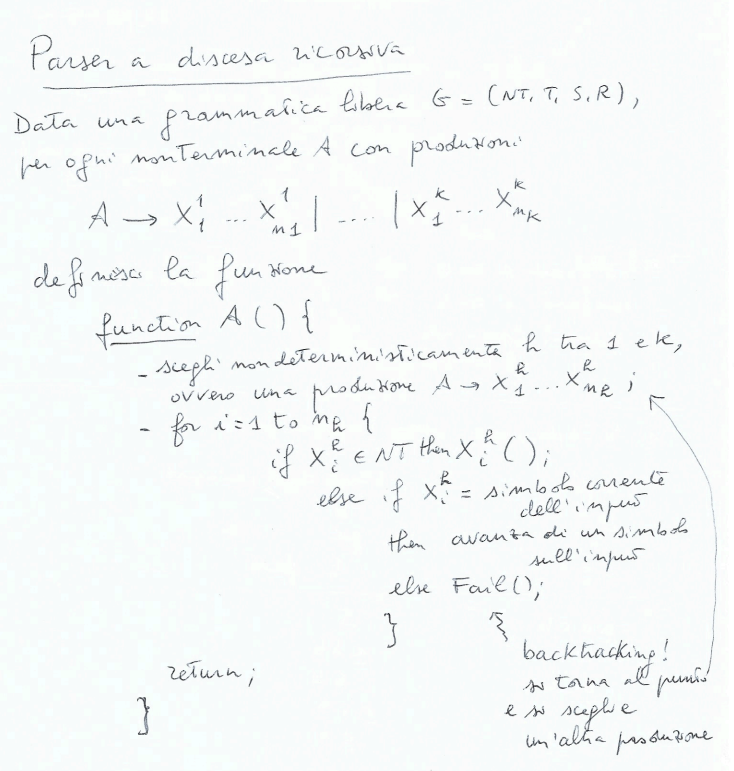 Parser a discesa ricorsiva
Data una grammatica libera G = (NT, T, S, R),
per ogni nonterminale A con produzioni
A → X₁¹ ... Xₙ₁¹ | .... | X₁ᵏ ... Xₙₖᵏ
definisci la funzione
function A() {
- scegli nondeterministicamente h tra 1 e k,
ovvero una produzione A → X₁ʰ ... Xₙₕʰ ;
- for i=1 to nₕ {
if Xᵢʰ ∈ NT then Xᵢʰ();
else if Xᵢʰ = simbolo corrente
dell'input
then avanza di un simbolo
sull'input
else Fail();
}
backtracking!
return;
si torna al punto
}
e si sceglie
un'altra produzione